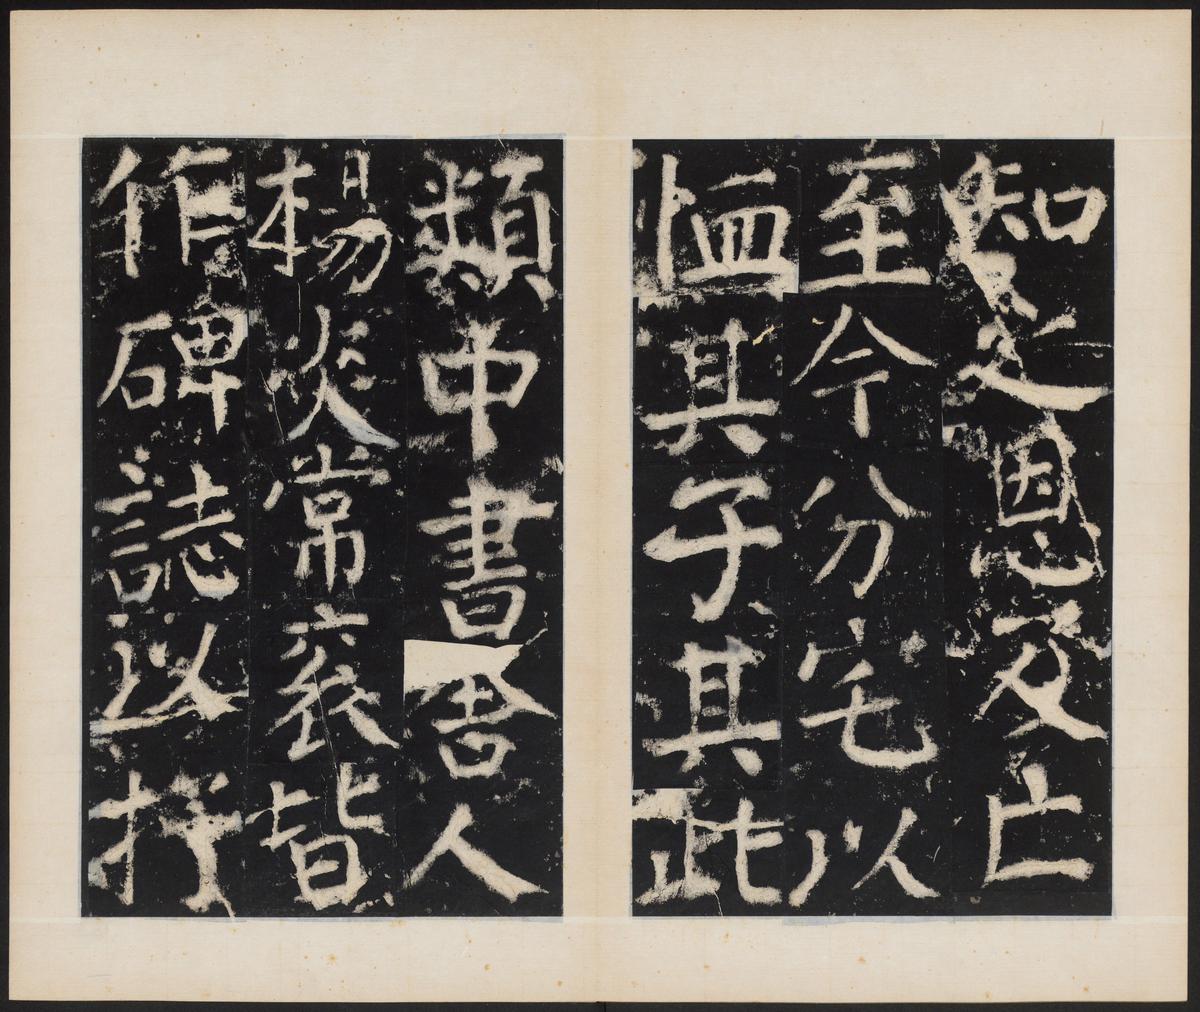 知之恩及亡
至今分宅以
恤其子其此
類中書舍人
楊炎常袞皆
作碑誌以抒